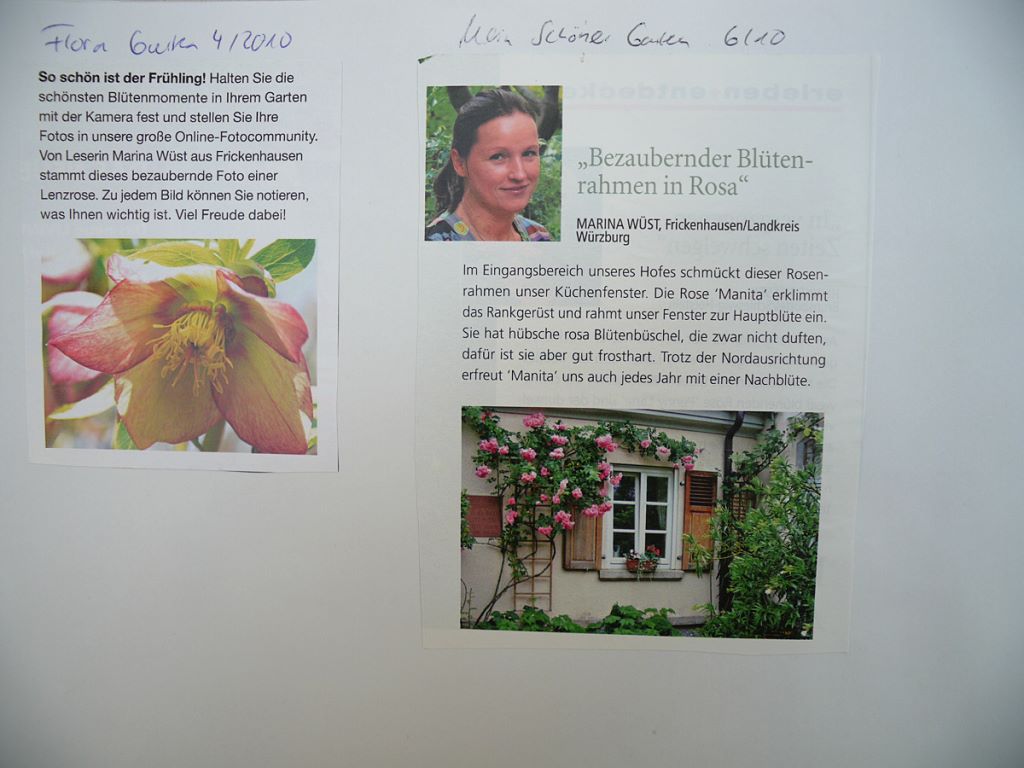 Flora Garten 4/2010
So schön ist der Frühling! Halten Sie die
schönsten Blütenmomente in Ihrem Garten
mit der Kamera fest und stellen Sie Ihre
Fotos in unsere große Online-Fotocommunity.
Von Leserin Marina Wüst aus Frickenhausen
stammt dieses bezaubernde Foto einer
Lenzrose. Zu jedem Bild können Sie notieren,
was Ihnen wichtig ist. Viel Freude dabei!
Mein Schöner Garten 6/10
erleben+entdecken
„Bezaubernder Blüten-
rahmen in Rosa“
MARINA WÜST, Frickenhausen/Landkreis
Würzburg
Im Eingangsbereich unseres Hofes schmückt dieser Rosen-
rahmen unser Küchenfenster. Die Rose ‘Manita’ erklimmt
das Rankgerüst und rahmt unser Fenster zur Hauptblüte ein.
Sie hat hübsche rosa Blütenbüschel, die zwar nicht duften,
dafür ist sie aber gut frosthart. Trotz der Nordausrichtung
erfreut ‘Manita’ uns auch jedes Jahr mit einer Nachblüte.